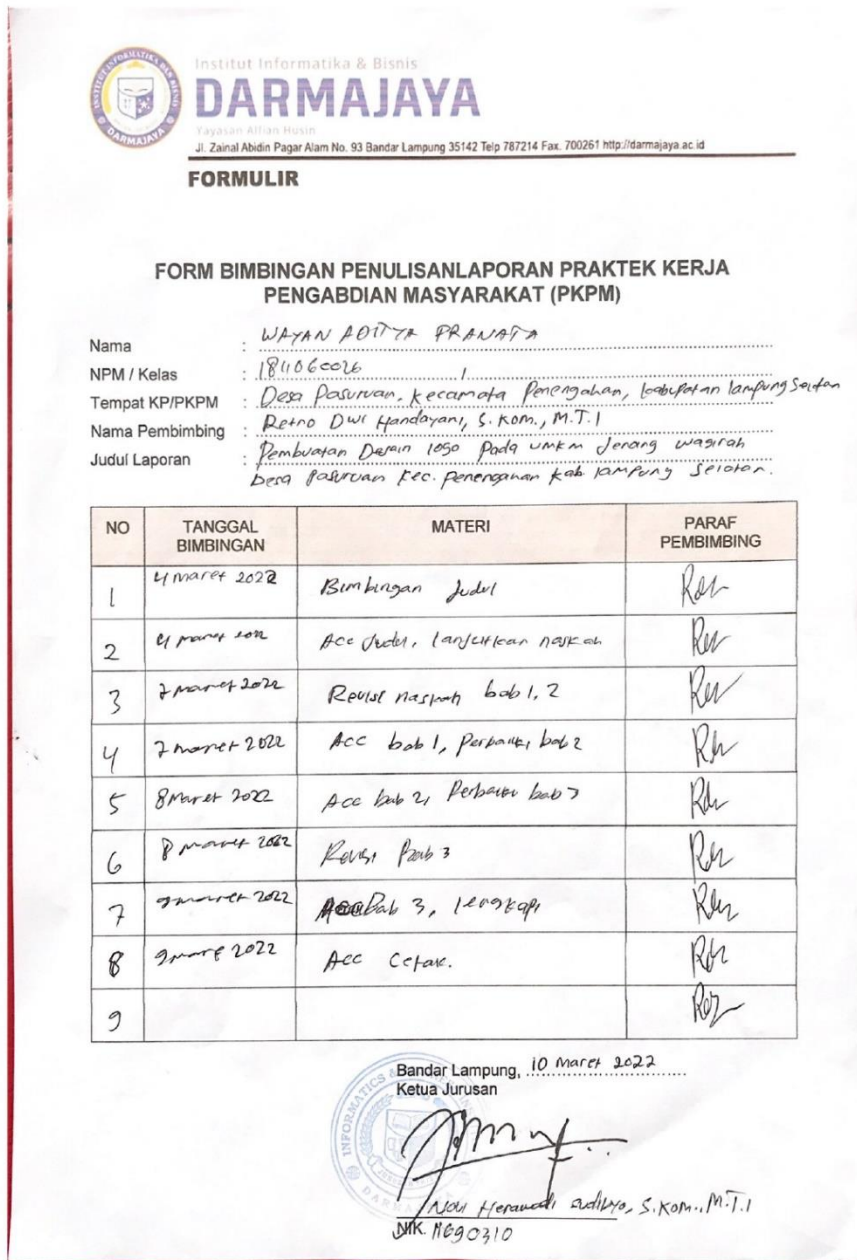 Institut Informatika & Bisnis
DARMAJAYA
Yayasan Alfian Husin
Jl. Zainal Abidin Pagar Alam No. 93 Bandar Lampung 35142 Telp 787214 Fax. 700261 http://darmajaya.ac.id
FORMULIR
FORM BIMBINGAN PENULISANLAPORAN PRAKTEK KERJA
PENGABDIAN MASYARAKAT (PKPM)
Nama : WAYAN ADITYA PRANATA
NPM / Kelas : 1811060026 /
Tempat KP/PKPM : Desa Pasuruan, Kecamata Penengahan, kabupatan lampung Selatan
Nama Pembimbing : Retno Dwi Handayani, S.Kom., M.T.I
Judul Laporan : Pembuatan Desain logo Pada umkm Jenang wagirah
Desa Pasuruan Kec. Penengahan Kab lampung Selatan.
NO TANGGAL BIMBINGAN MATERI PARAF PEMBIMBING
1 4 maret 2022 Bimbingan Judul
2 4 maret 2022 Acc Judul, lanjutkan naskah
3 7 maret 2022 Revisi naskah bab 1, 2
4 7 maret 2022 Acc bab 1, Perbaiki bab 2
5 8 Maret 2022 Acc bab 2, Perbaiki bab 3
6 8 maret 2022 Revisi Bab 3
7 9 maret 2022 Acc Bab 3, lengkapi
8 9 mare 2022 Acc Cetak.
9
Bandar Lampung, 10 Maret 2022
Ketua Jurusan
Herawati Sudibyo, S.Kom., M.T.I
NIK.